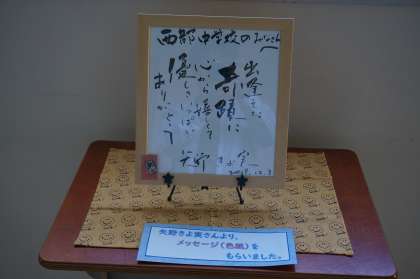 西部中学校のみなさん
出逢えた
奇蹟に
心から感じて
優しさいっぱい
ありがとう
矢野きよ実
矢野きよ実さんより、
メッセージ(色紙)を
もらいました。